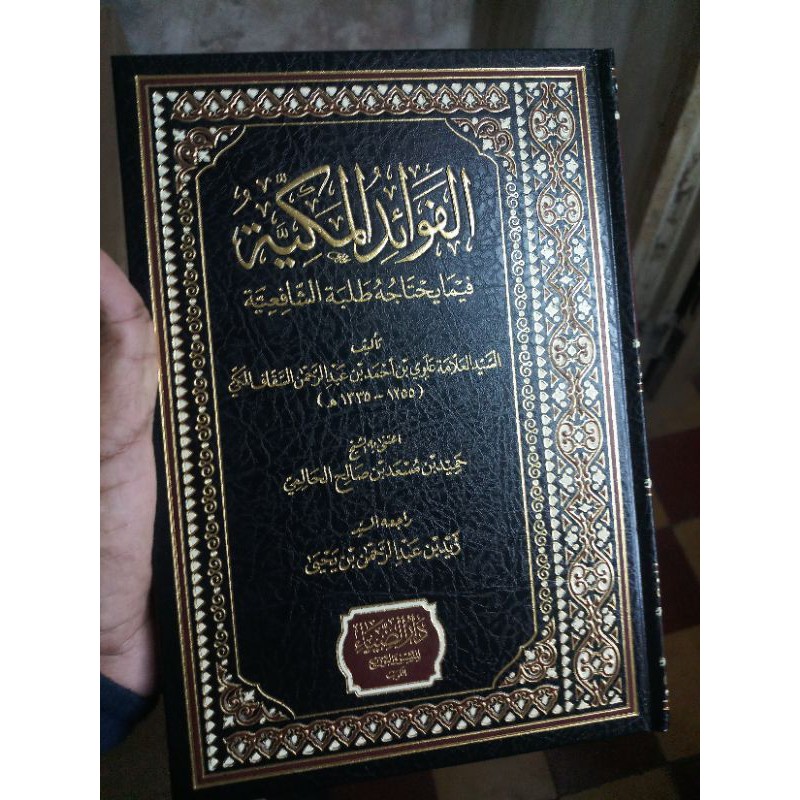 الفَوَائِدُ المَكِّيَّةُ
فِيمَا يَحْتَاجُهُ طَلَبَةُ الشَّافِعِيَّةِ
تأليف
السَّيِّد العَلَّامَة عَلَوِي بْن أَحْمَد بْن عَبْد الرَّحْمٰن السَّقَّاف المَكِّي
(١٢٥٥ - ١٣٣٥ هـ)
اعتنى به الشيخ
حَمِيد بْن مُسْعَد بْن صَالِح الحَالِمِي
راجعه السيد
زَيْد بْن عَبْد الرَّحْمٰن بْن يَحْيَى
دَارُ الضِّيَاءِ
للنشر والتوزيع
الكويت